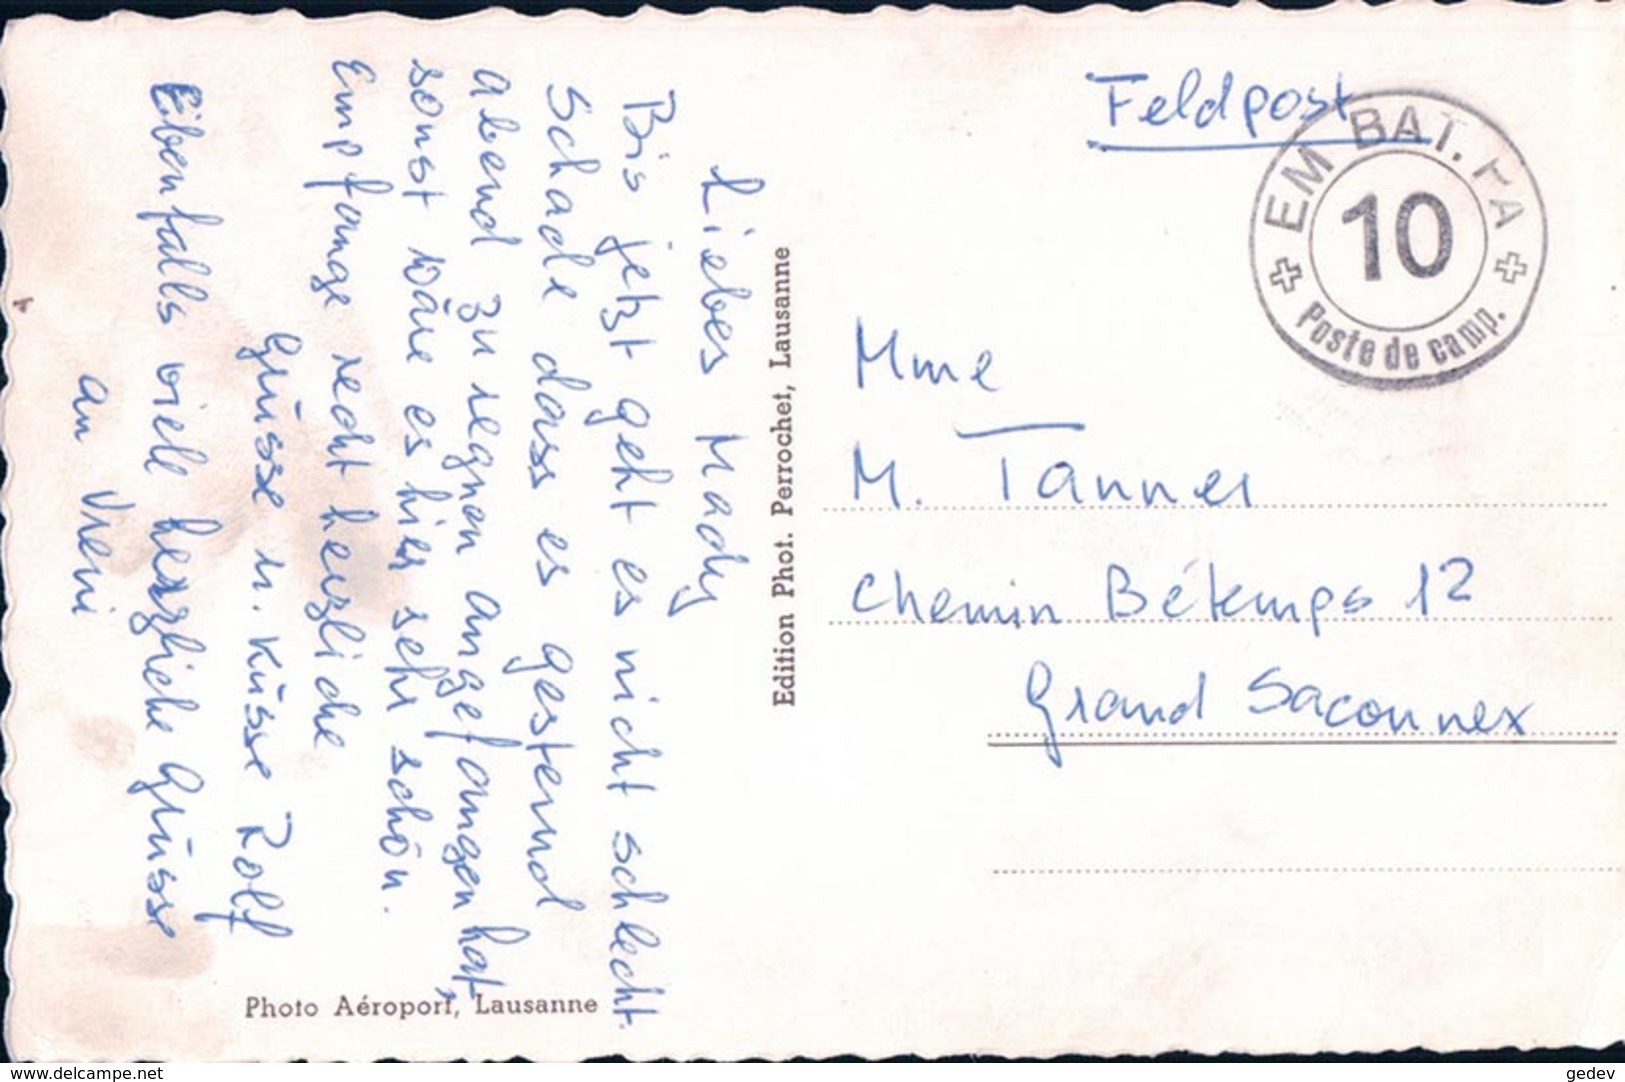 Liebes Mady
Bis jetzt geht es nicht schlecht.
Schade dass es gesternd
abend zu regnen angefangen hat,
sonst wäre es hier sehr schön.
Empfange recht herzliche
Grüsse u. Küsse Rolf
Ebenfalls viele herzliche Grüsse
an Vreni
Photo Aéroport, Lausanne
Edition Phot. Perrochet, Lausanne
Feldpost
EM BAT. FA
10
Poste de camp.
Mme
M. Tanner
Chemin Bétemps 12
Grand Saconnex
www.delcampe.net
gedev